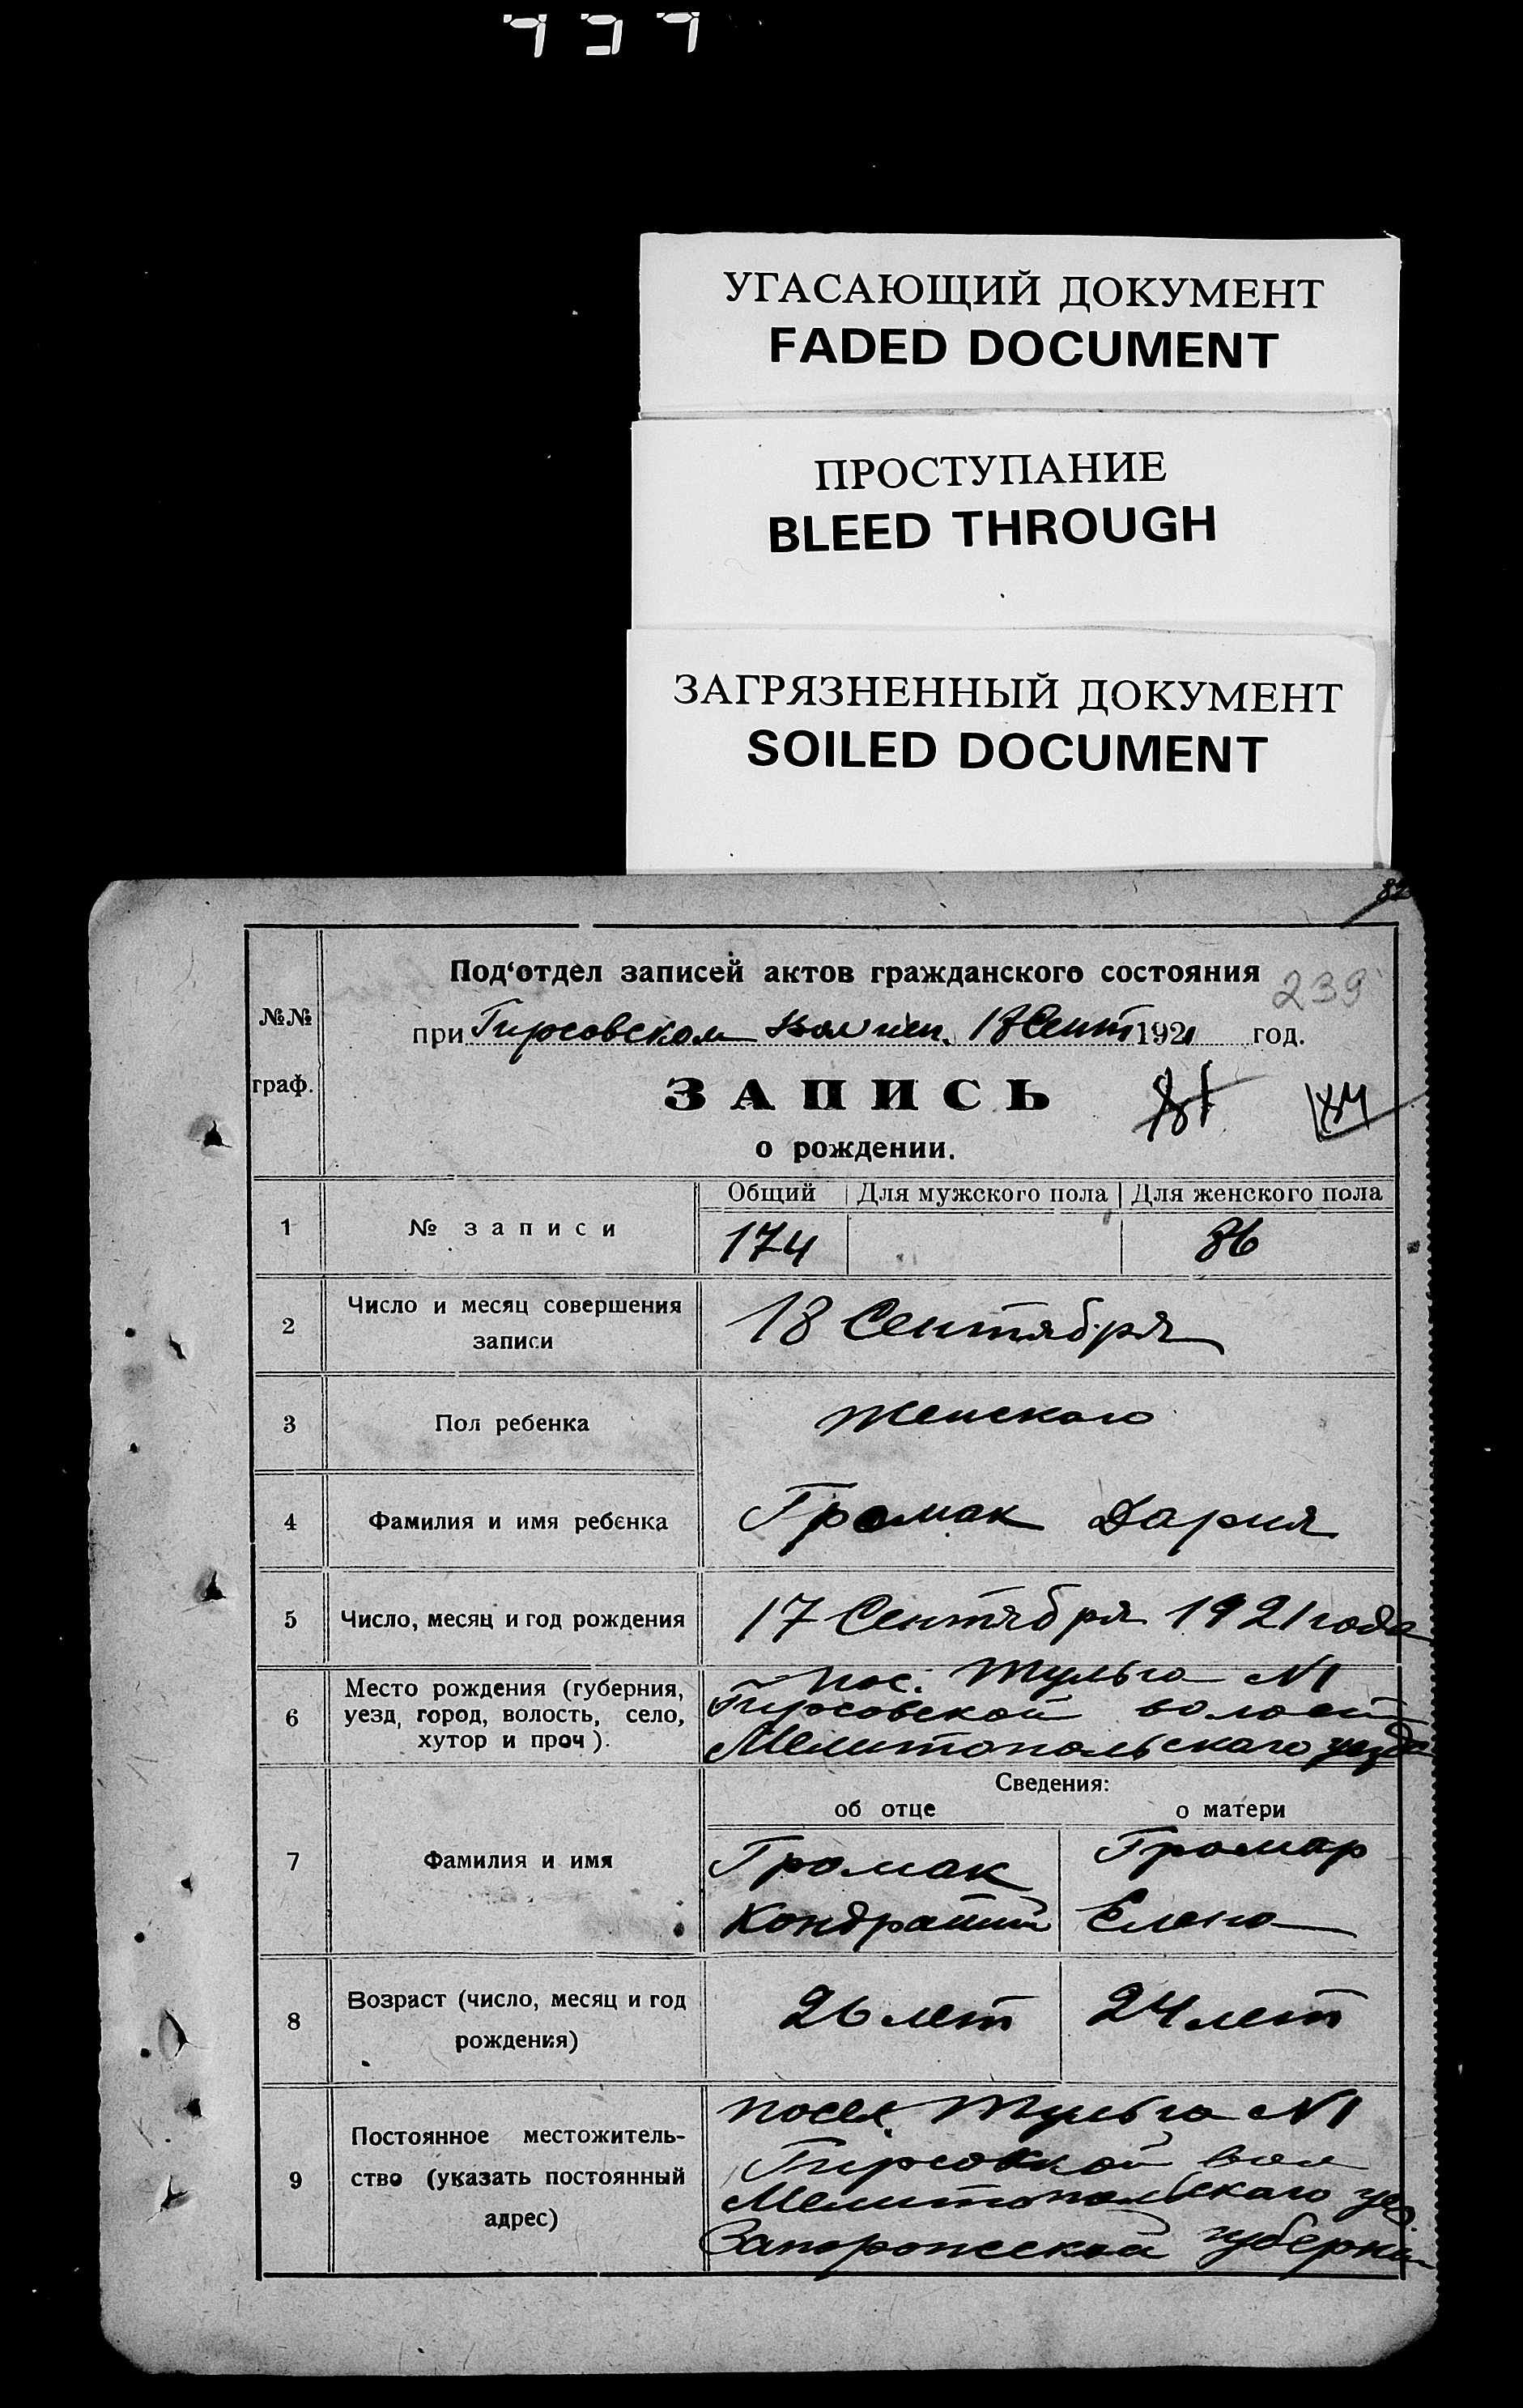 УГАСАЮЩИЙ ДОКУМЕНТ
FADED DOCUMENT
ПРОСТУПАНИЕ
BLEED THROUGH
ЗАГРЯЗНЕННЫЙ ДОКУМЕНТ
SOILED DOCUMENT
82
Под‘отдел записей актов гражданского состояния
239
№№
граф.
при Гирсовском 18 Сент 1921 год.
ЗАПИСЬ
81 84
о рождении.
Общий Для мужского пола Для женского пола
1 № записи 174 86
2 Число и месяц совершения
записи
18 Сентября
3 Пол ребенка Женскаго
4 Фамилия и имя ребенка Громак Дария
5 Число, месяц и год рождения 17 Сентября 1921 года
6 Место рождения (губерния,
уезд, город, волость, село,
хутор и проч).
пос. Тульга №1
Гирсовской волости
Мелитопольскаго уезда
Сведения:
об отце о матери
7 Фамилия и имя
Громак Громак
Кондратий Елена
8 Возраст (число, месяц и год
рождения)
26 лет 24 лет
9 Постоянное местожитель-
ство (указать постоянный
адрес)
посел. Тульга №1
Гирсовской вол
Мелитопольскаго уез.
Запорожской губернии